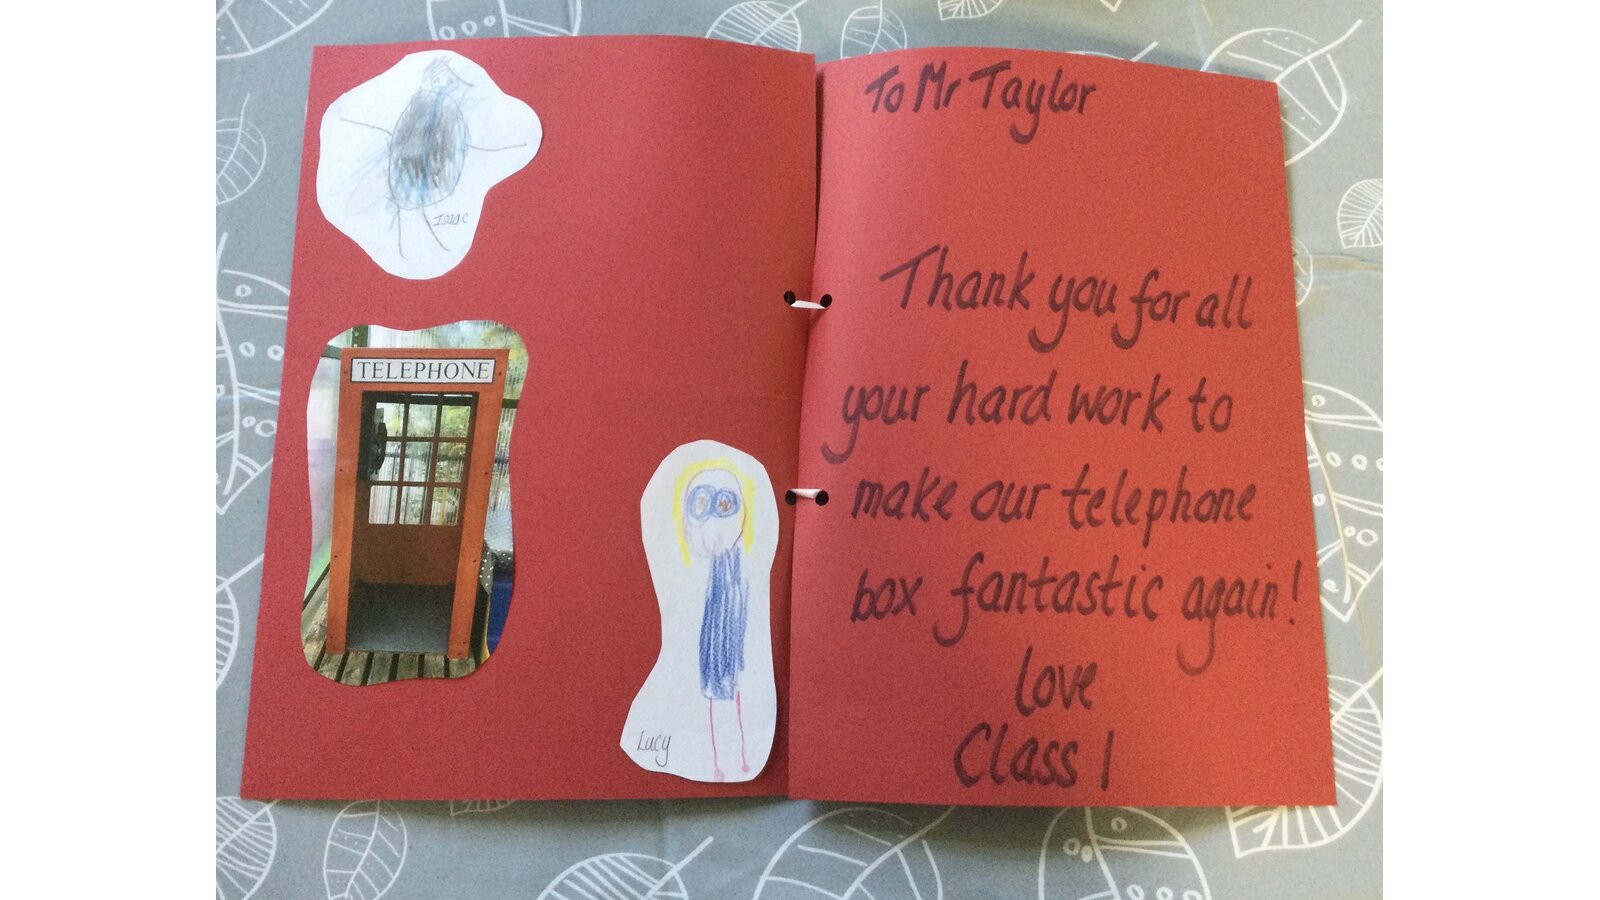 Isaac
TELEPHONE
Lucy
To Mr Taylor
Thank you for all
your hard work to
make our telephone
box fantastic again!
love
Class 1